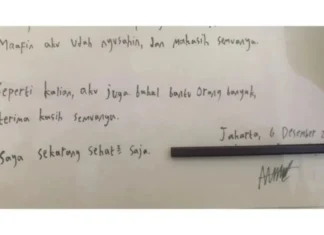 Maafin aku udah ngusahin, dan makasih semuanya.
seperti kalian, aku juga bakal bantu orang banyak,
terima kasih semuanya.
Jakarta, 6 Desember
Saya sekarang sehat² saja.